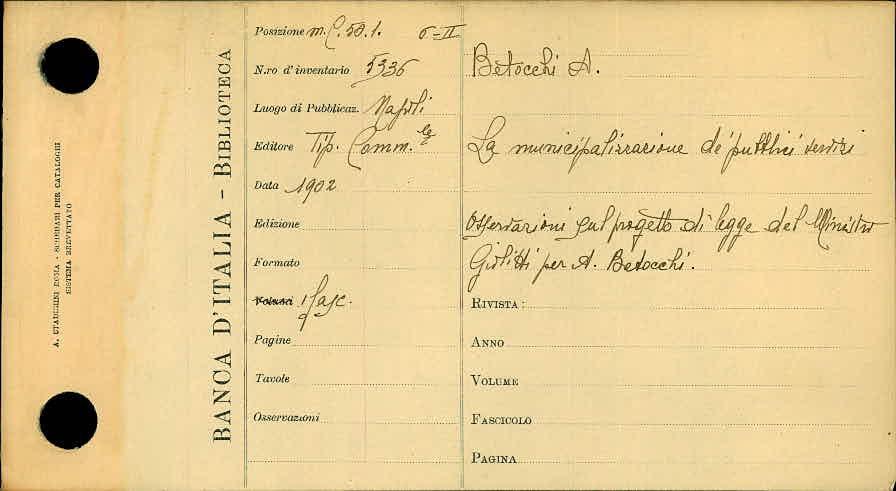 A. STADERINI ROMA - SCHEDARI PER CATALOGHI
SISTEMA BREVETTATO
BANCA D'ITALIA - BIBLIOTECA
Posizione m. C. 50. 1. 6-II
N.ro d'inventario 5336
Luogo di Pubblicaz. Napoli
Editore Tip. Comm.le
Data 1902
Edizione
Formato
Volumi 1 fasc.
Pagine
Tavole
Osservazioni
Betocchi A.
La municipalizzazione de' pubblici servizi
Osservazioni sul progetto di legge del Ministro
Giolitti per A. Betocchi.
RIVISTA:
ANNO
VOLUME
FASCICOLO
PAGINA